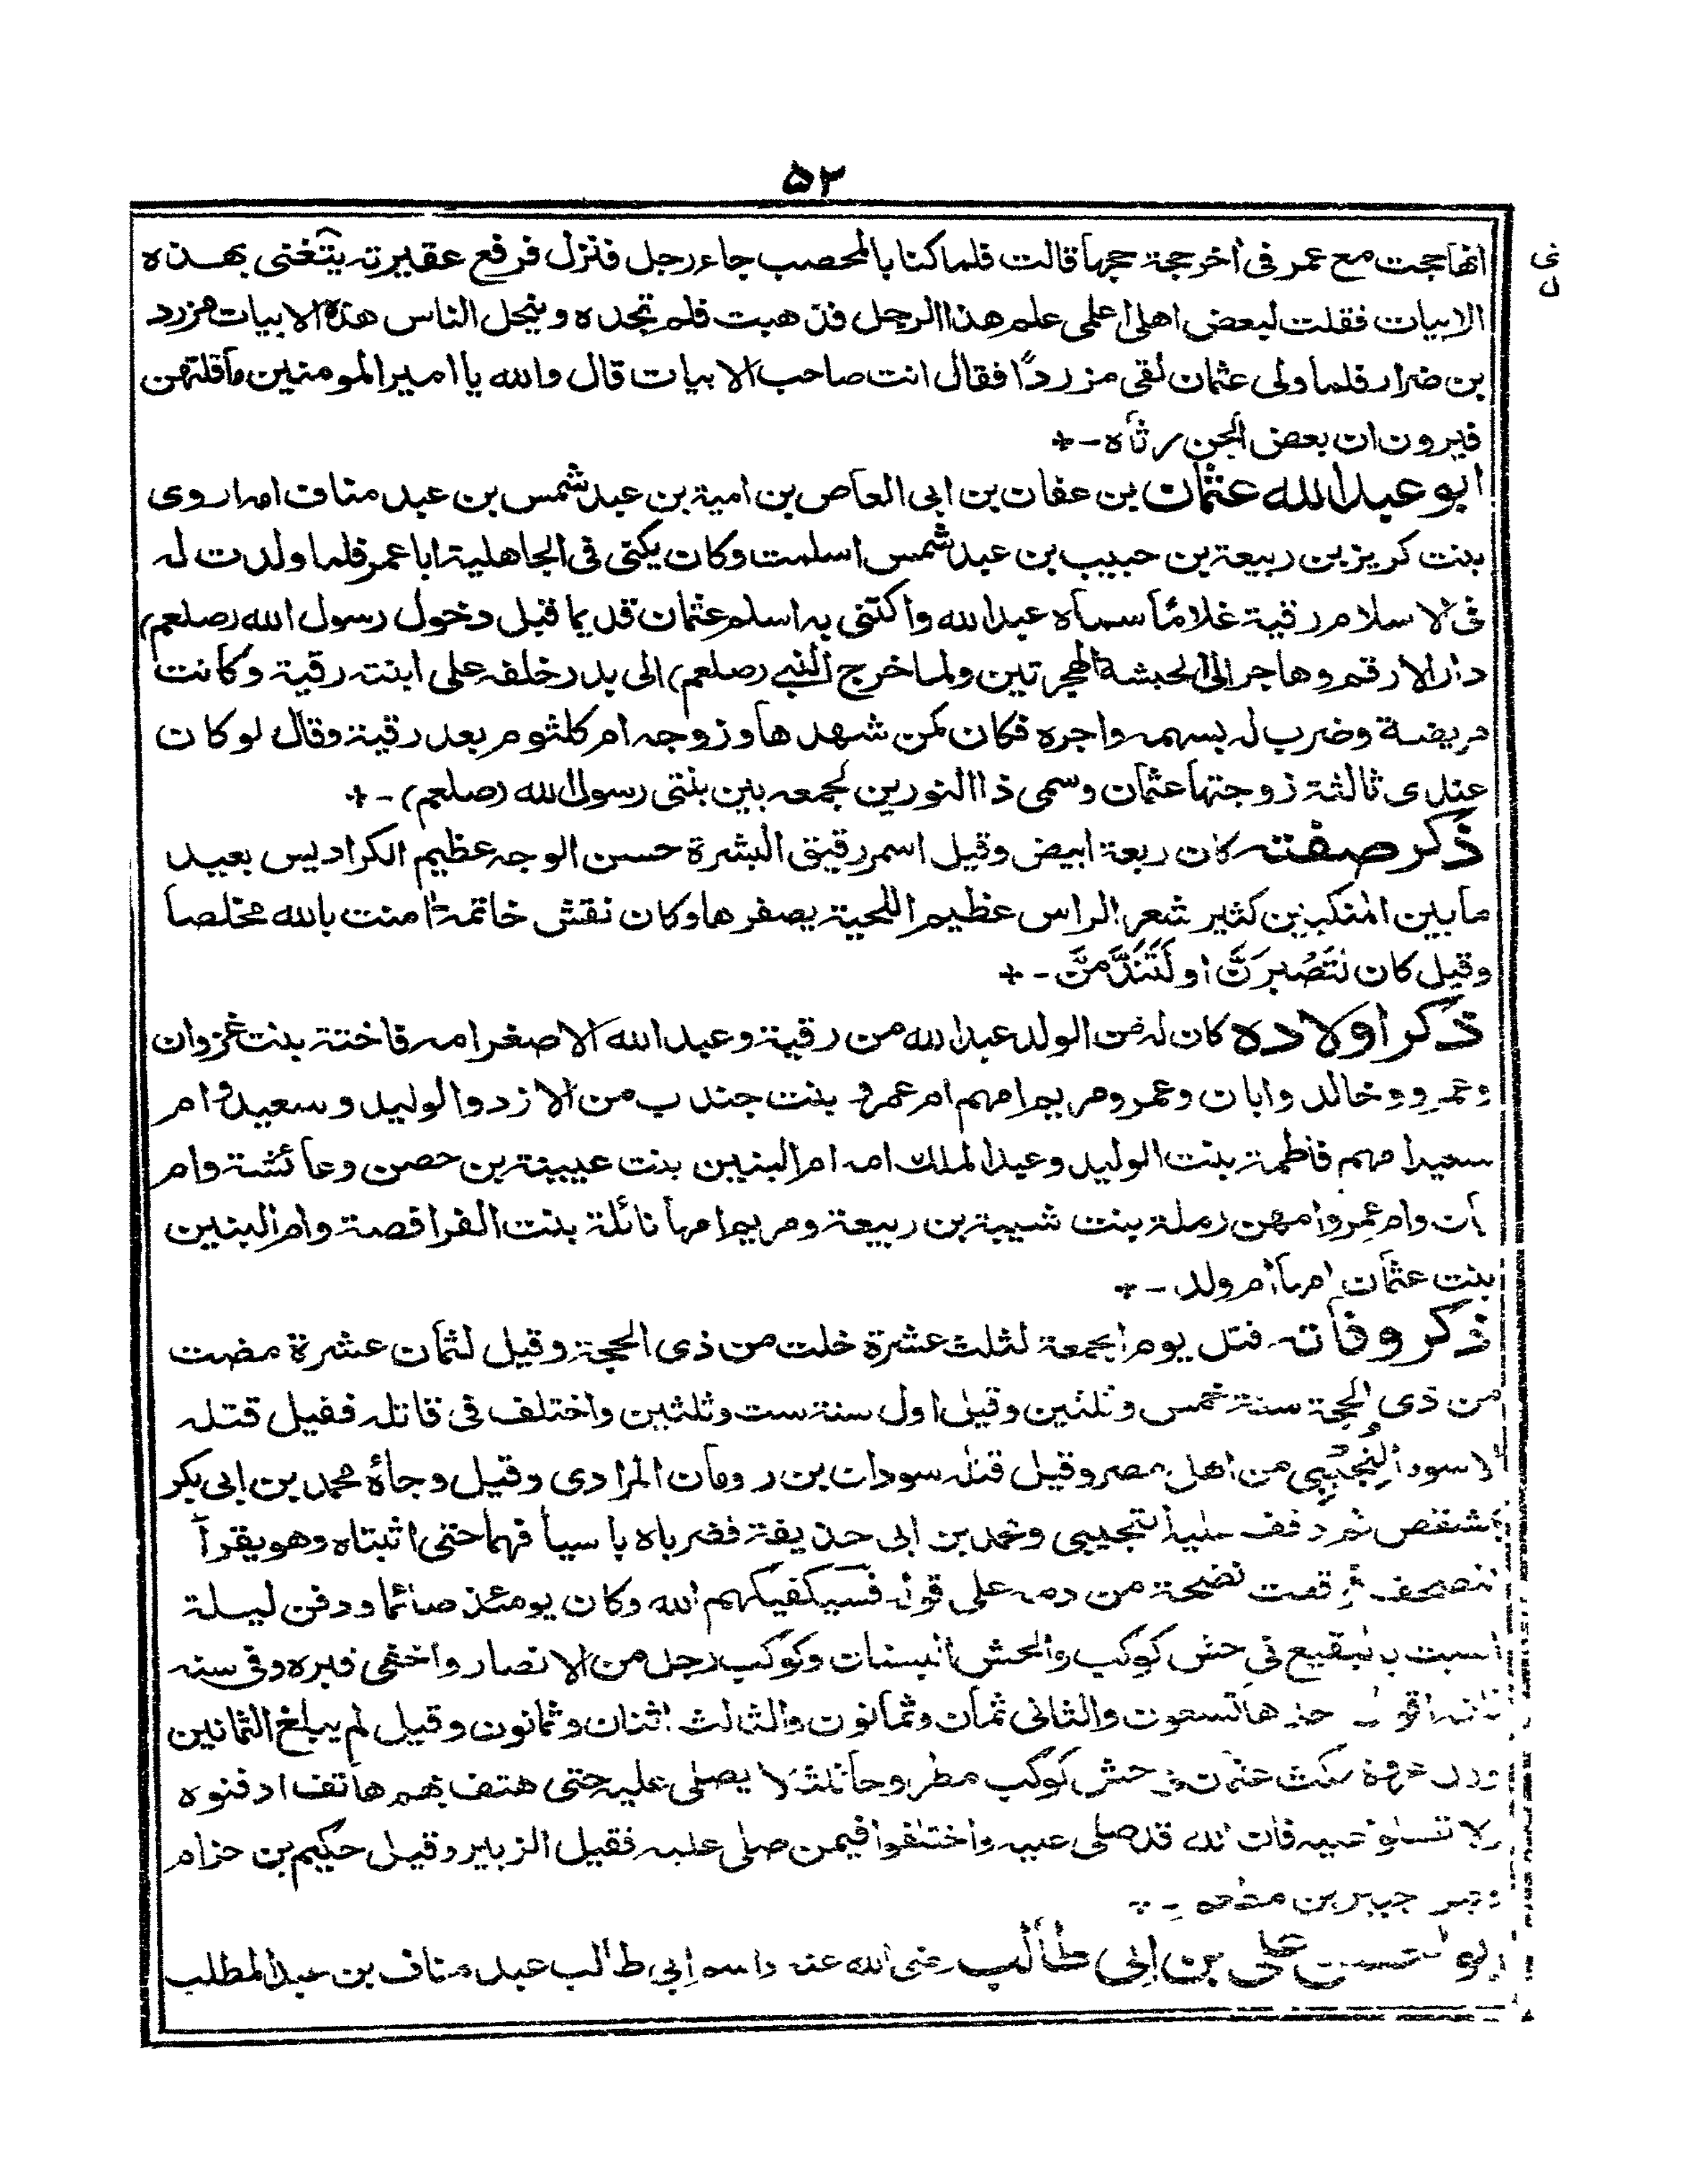 ۵۲
انها حجت مع عمر فى أخر حجة حجها قالت فلما كنا بالمحصب جاء رجل فنزل فرفع عقيرته يتغنى بهذه
الابيات فقلت لبعض اهلى اعلمى علم هذا الرجل فذهبت فلم تجده وينحل الناس هذه الابيات مزرد
بن ضرار فلما ولى عثمان لقى مزردًا فقال انت صاحب الابيات قال والله يا امير المومنين ما قلتهن
فيرون ان بعض الجن رثاه -+
ابو عبد الله عثمان بن عفان بن ابى العاص بن امية بن عبد شمس بن عبد مناف امه اروى
بنت كريز بن ربيعة بن حبيب بن عبد شمس اسلمت وكان يكنى فى الجاهلية ابا عمر فلما ولدت له
فى الاسلام رقية غلامًا سماه عبد الله واكتنى به اسلم عثمان قديما قبل دخول رسول الله (صلعم)
دار الارقم وهاجر الى الحبشة الهجرتين ولما خرج النبى (صلعم) الى بدر خلفه على ابنته رقية وكانت
مريضة وضرب له بسهمه واجره فكان كمن شهدها وزوجه ام كلثوم بعد رقية وقال لو كان
عندى ثالثة زوجتها عثمان وسمى ذا النورين لجمعه بين بنتى رسول الله (صلعم) -+
ذكر صفته كان ربعة ابيض وقيل اسمر رقيق البشرة حسن الوجه عظيم الكراديس بعيد
ما بين المنكبين كثير شعر الراس عظيم اللحية يصفرها وكان نقش خاتمه امنت بالله مخلصا
وقيل كان لَتَصْبِرَنَّ او لَتَنَدَّمَنَّ -+
ذكر اولاده كان له من الولد عبد الله من رقية وعبد الله الاصغر امه فاختة بنت غزوان
وعمرو وخالد وابان وعمر ومريم امهم ام عمرو بنت جندب من الازد والوليد وسعيد وام
سعيد امهم فاطمة بنت الوليد وعبد الملك امه ام البنين بنت عيينة بن حصن وعائشة وام
ابان وام عمرو امهن رملة بنت شيبة بن ربيعة ومريم امها نائلة بنت الفرافصة وام البنين
بنت عثمان امها ام ولد -+
ذكر وفاته قتل يوم الجمعة لثلث عشرة خلت من ذى الحجة وقيل لثمان عشرة مضت
من ذى الحجة سنة خمس وثلثين وقيل اول سنة ست وثلثين واختلف فى قاتله فقيل قتله
الاسود التُجيبِي من اهل مصر وقيل قتله سودان بن رومان المرادى وقيل وجأه محمد بن ابى بكر
بمشقص ثم دفف عليه التجيبى ومحمد بن ابى حذيفة فضرباه باسيافهما حتى اثبتاه وهو يقرأ
المصحف فوقعت نضحة من دمه على قوله فسيكفيكهم الله وكان يومئذ صائما ودفن ليلة
السبت بالبقيع فى حش كوكب والحش البستان وكوكب رجل من الانصار واخفى قبره وفى سنه
ثلثه اقوال احدها تسعون والثانى ثمان وثمانون والثالث اثنان وثمانون وقيل لم يبلغ الثمانين
عروة مكث عثمان فى حش كوكب مطروحا ثلثا لا يصلى عليه حتى هتف بهم هاتف ادفنوه
ولا تصلوا عليه فان الله قد صلى عليه واختلفوا فيمن صلى عليه فقيل الزبير وقيل حكيم بن حزام
وقيل جبير بن مطعم -+
ابو الحسن على بن ابى طالب رضى الله عنه واسم ابى طالب عبد مناف بن عبد المطلب